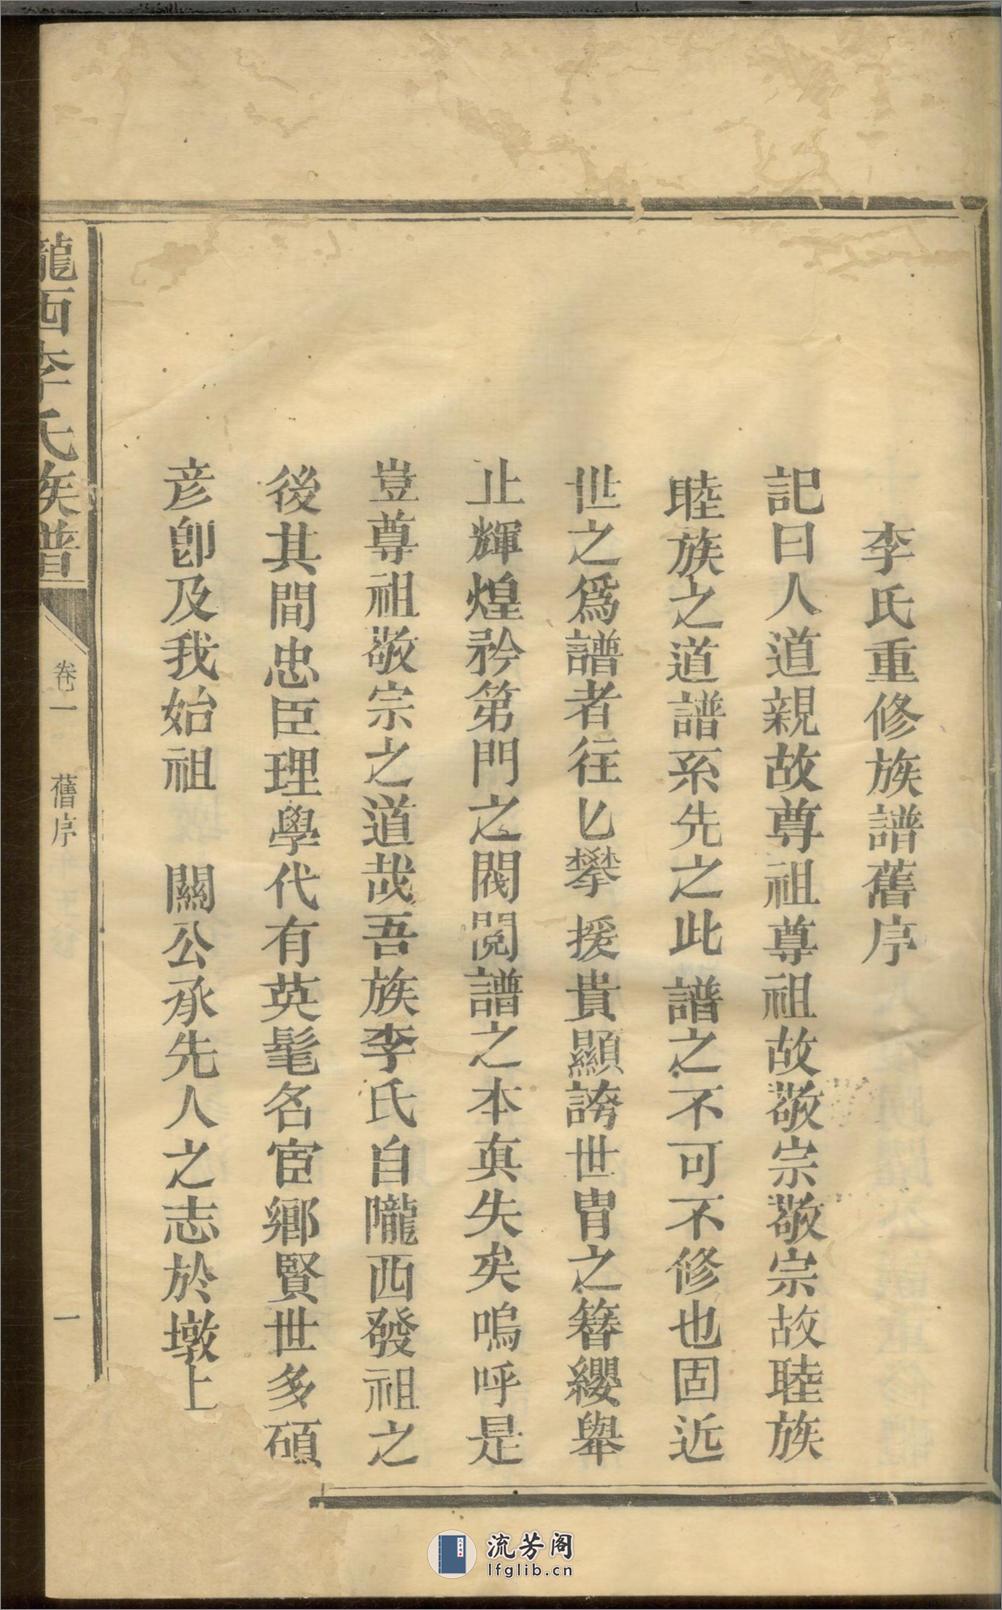 李氏重修族譜舊序
記曰人道親故尊祖尊祖故敬宗敬宗故睦族
睦族之道譜系先之此譜之不可不修也固近
世之爲譜者往匕攀援貴顯誇世胄之簪纓舉
止輝煌矜第門之閥閱譜之本真失矣嗚呼是
豈尊祖敬宗之道哉吾族李氏自隴西發祖之
後其間忠臣理學代有英髦名宦鄉賢世多碩
彦卽及我始祖 關公承先人之志於墩上
隴西李氏族譜 卷一 舊序 一
流芳阁
lfglib.cn